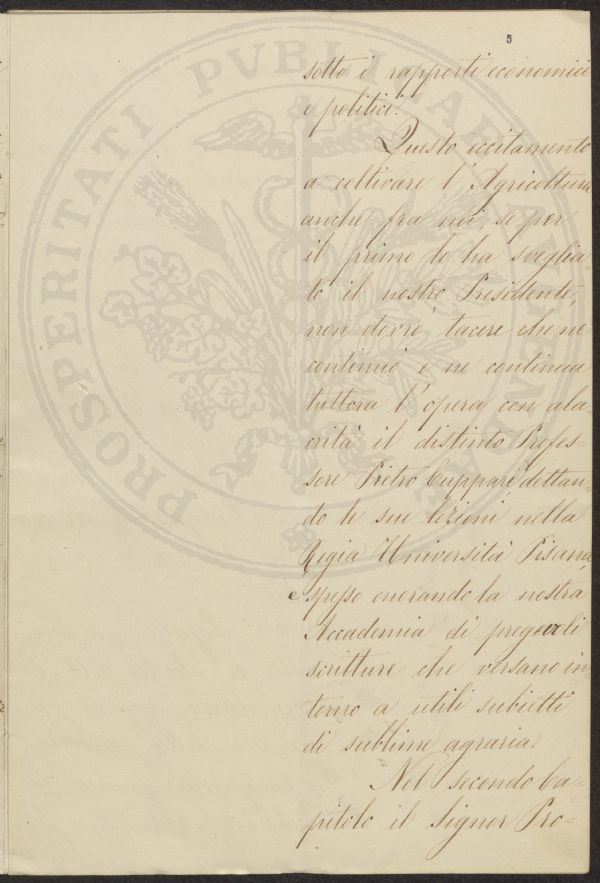 5
sotto i rapporti economici
e politici.
Questo eccitamento
a coltivare l'Agricoltura
anche fra noi, se per
il primo lo ha sveglia-
to il nostro Presidente,
non dovrò tacere che ne
continuò e ne continua
tuttora l'opera con ala-
crità il distinto Profes-
sore Pietro Cuppari, dettan-
do le sue lezioni nella
Regia Università Pisana,
e spesso onorando la nostra
Accademia di pregevoli
scritture che versano in-
torno a utili subietti
di sublime agraria.
Nel secondo Ca-
pitolo il Signor Pro-
PROSPERITATI PVBLICAE AVGENDAE